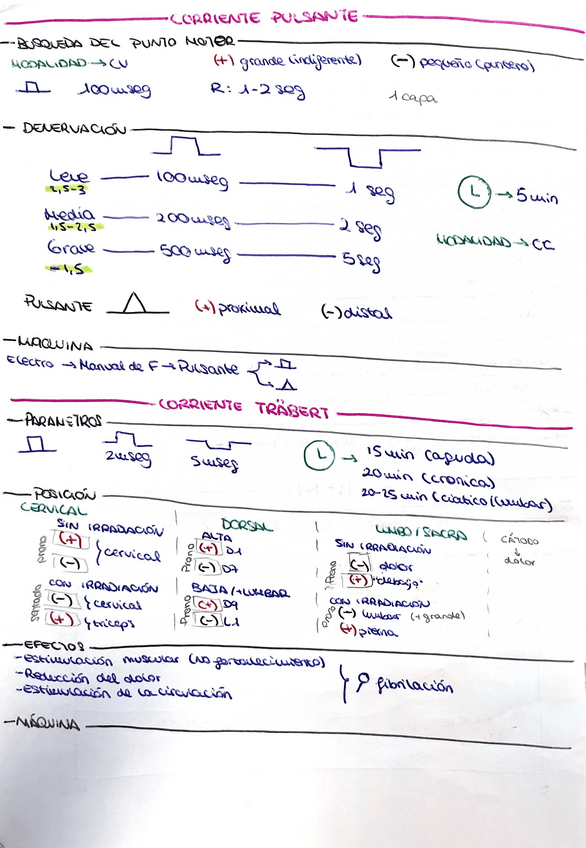 CORRIENTE PULSANTE
BÚSQUEDA DEL PUNTO MOTOR
MODALIDAD → CV (+) grande (indiferente) (-) pequeño (puntero)
100 mseg R: 1-2 seg 1 capa
DENERVACIÓN
Leve 100 mseg 1 seg
2,5-3
L → 5 min
Media 200 mseg 2 seg
1,5-2,5
MODALIDAD → CC
Grave 500 mseg 5 seg
-1,5
PULSANTE (+) proximal (-) distal
MAQUINA
Electro → Manual de F → Pulsante
CORRIENTE TRÄBERT
PARAMETROS
2 mseg 5 mseg L → 15 min (aguda)
20 min (cronica)
20-25 min (ciatico (lumbar)
POSICIÓN
CERVICAL
SIN IRRADIACIÓN
Prono (+) (-) } cervical
CON IRRADIACIÓN
Sentado (-) } cervical
(+) } triceps
DORSAL
ALTA
Prono (+) D1
(-) D7
BAJA/+LUMBAR
Prono (+) D9
(-) L1
LUMBO/SACRA
SIN IRRADIACIÓN
Prono (-) dolor
(+) "debajo"
CON IRRADIACIÓN
Prono (-) lumbar (+grande)
(+) pierna
CÁTODO
↓
dolor
EFECTOS
-Estimulación muscular (NO fortalecimiento)
-Reducción del dolor
-Estimulación de la circulación
fibrilación
MÁQUINA